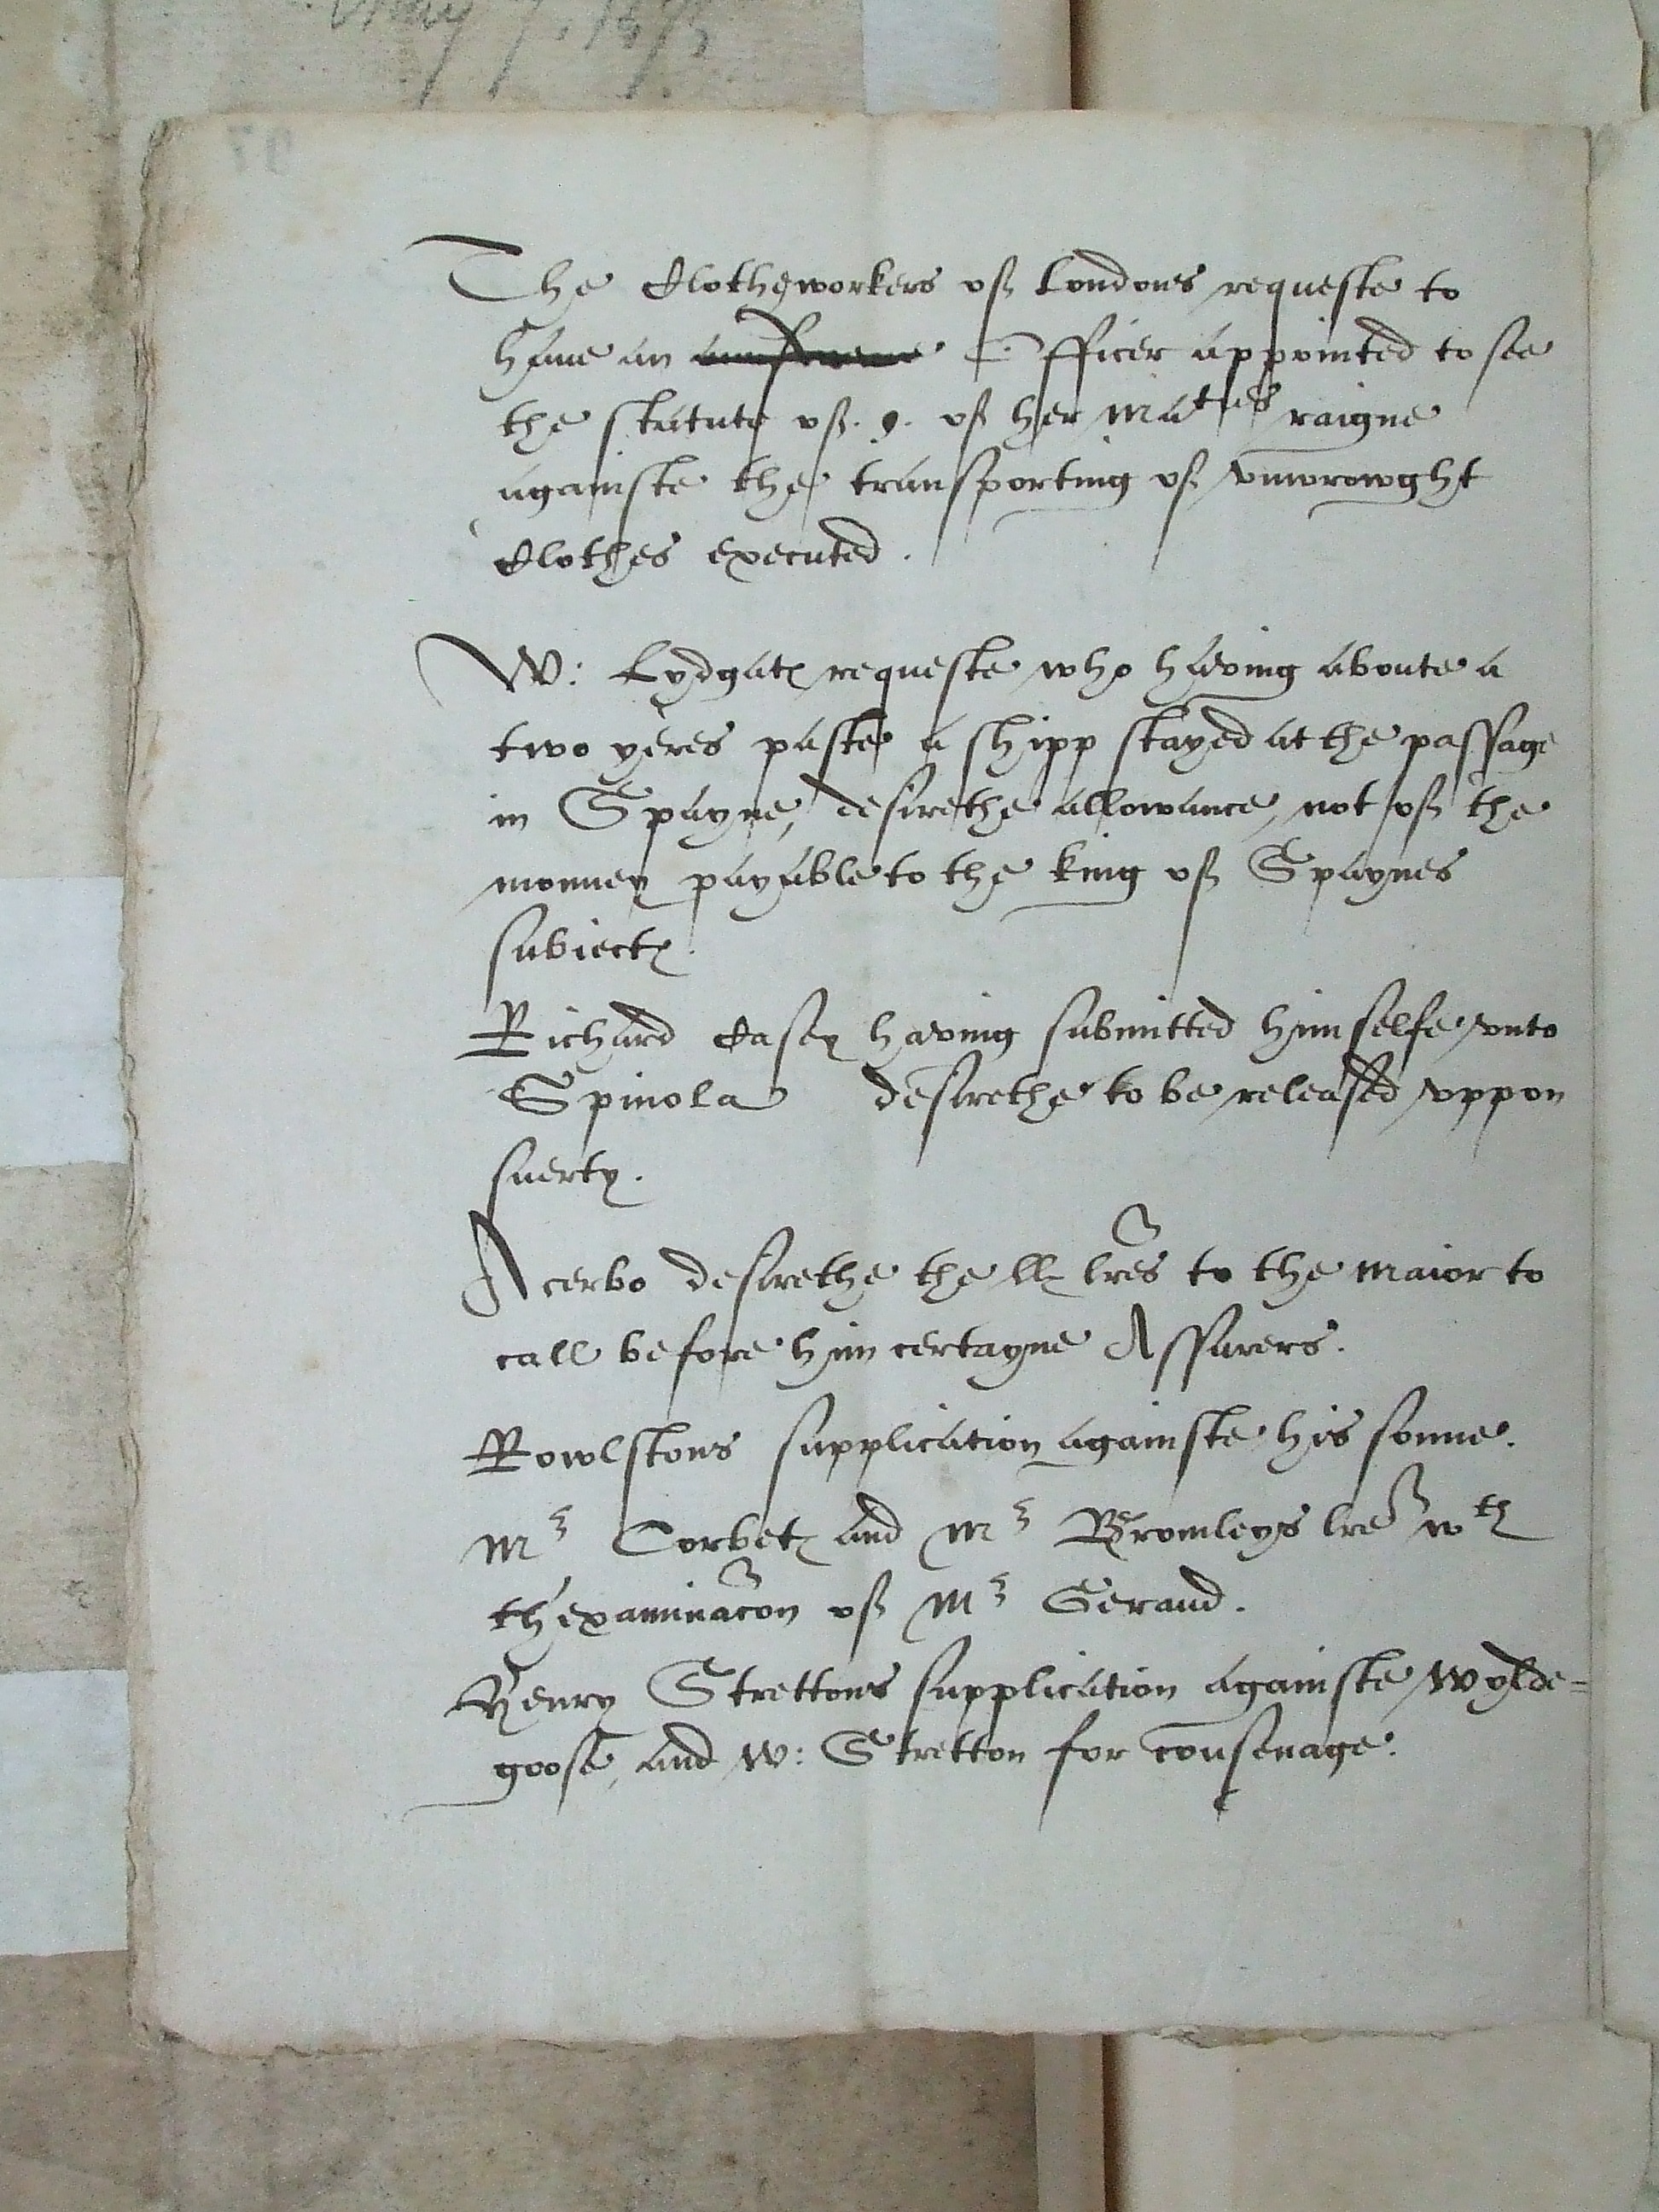 May 7, 157
The Clotheworkers of Londons requeste to
haue an Officer appointed to see
the statute of .9. of her Maties raigne
againste the transporting of vnwrowght
Clothes executed.
W: Lydgates requeste who having aboute a
two yeres paste a shipp stayed at the passage
in Spayne, desirethe allowance, not of the
monney payable to the king of Spaynes
subiectes.
Richard Casey having submitted himselfe vnto
Spinola desirethe to be released vppon
suerty.
Acerbo desirethe the ll: lres to the Maior to
call before him certayne Assurers.
Rowlstons supplication againste his sonne.
Mr Corbetes and Mr Bromleys lre wth
thexaminacon of Mr Gerard.
Henry Strettons supplication againste Wylde=
goose, and W: Stretton for consenage.